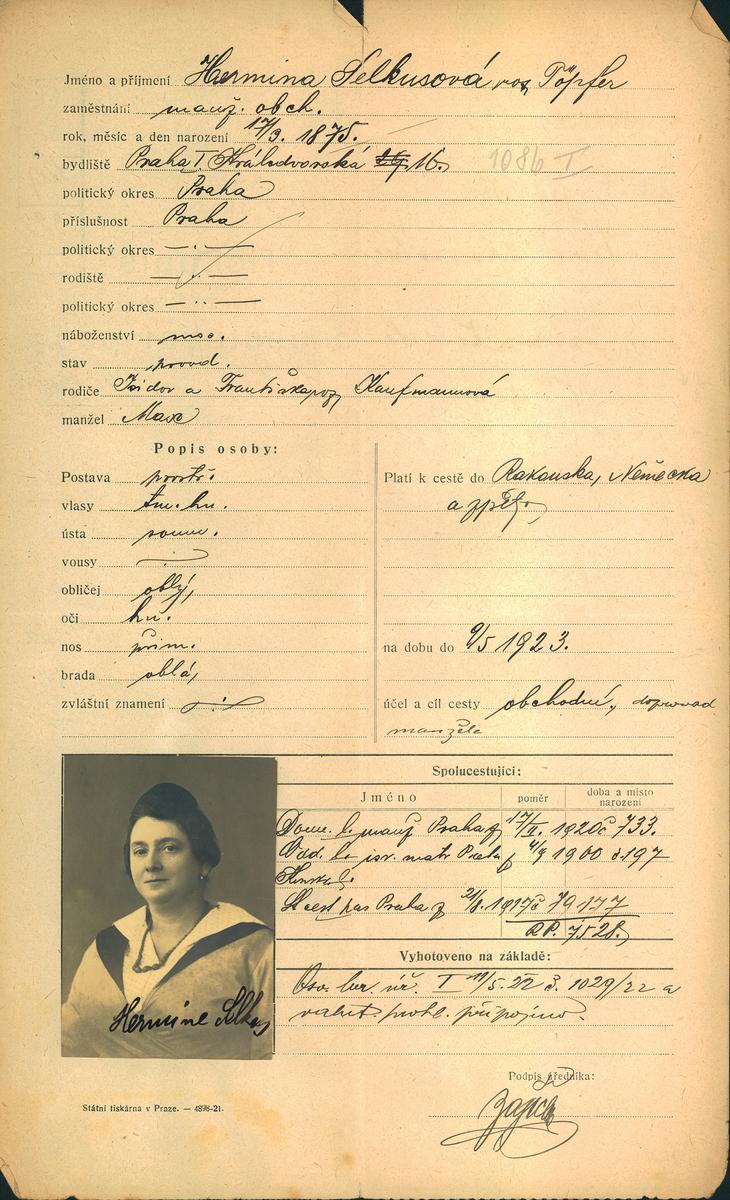 Jméno a příjmení Hermina Selkusová roz. Töpfer
zaměstnání manž. obch.
rok, měsíc a den narození 17/3. 1875.
bydliště Praha I. Králodvorská 16. 1086 I
politický okres Praha
příslušnost Praha
politický okres — · —
rodiště — ·· —
politický okres — ·· —
náboženství mos.
stav provd.
rodiče Isidor a Františka roz. Kaufmannová
manžel Max
Popis osoby:
Postava prostř.
vlasy tm. hn.
ústa soum.
vousy
obličej oblý,
oči hn.
nos přim.
brada oblá,
zvláštní znamení
Platí k cestě do Rakouska, Německa
a zpět.
na dobu do 9/5 1923.
účel a cíl cesty obchodní, doprovod
manžela
Spolucestující:
Jméno poměr doba a místo narození
Dom. l. manž. Praha z 17/II. 1920 č 733.
Odd. l. isr. matr. Praha z 4/9 1900 č. 197
St cest pas Praha z 21/8. 1917 č 79.177
R.P. 7528.
Vyhotoveno na základě:
Osv. ber. úř. I 11/5. 22 č. 1029/22 a
valut. prohl. připojeno.
Hermine Selkus
Podpis úředníka:
Státní tiskárna v Praze. — 4878-21.